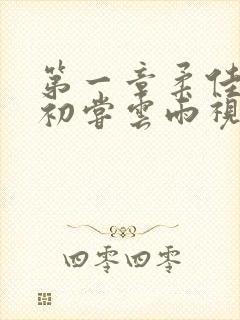 第一章柔佳
初尝雲雨視
四零四零